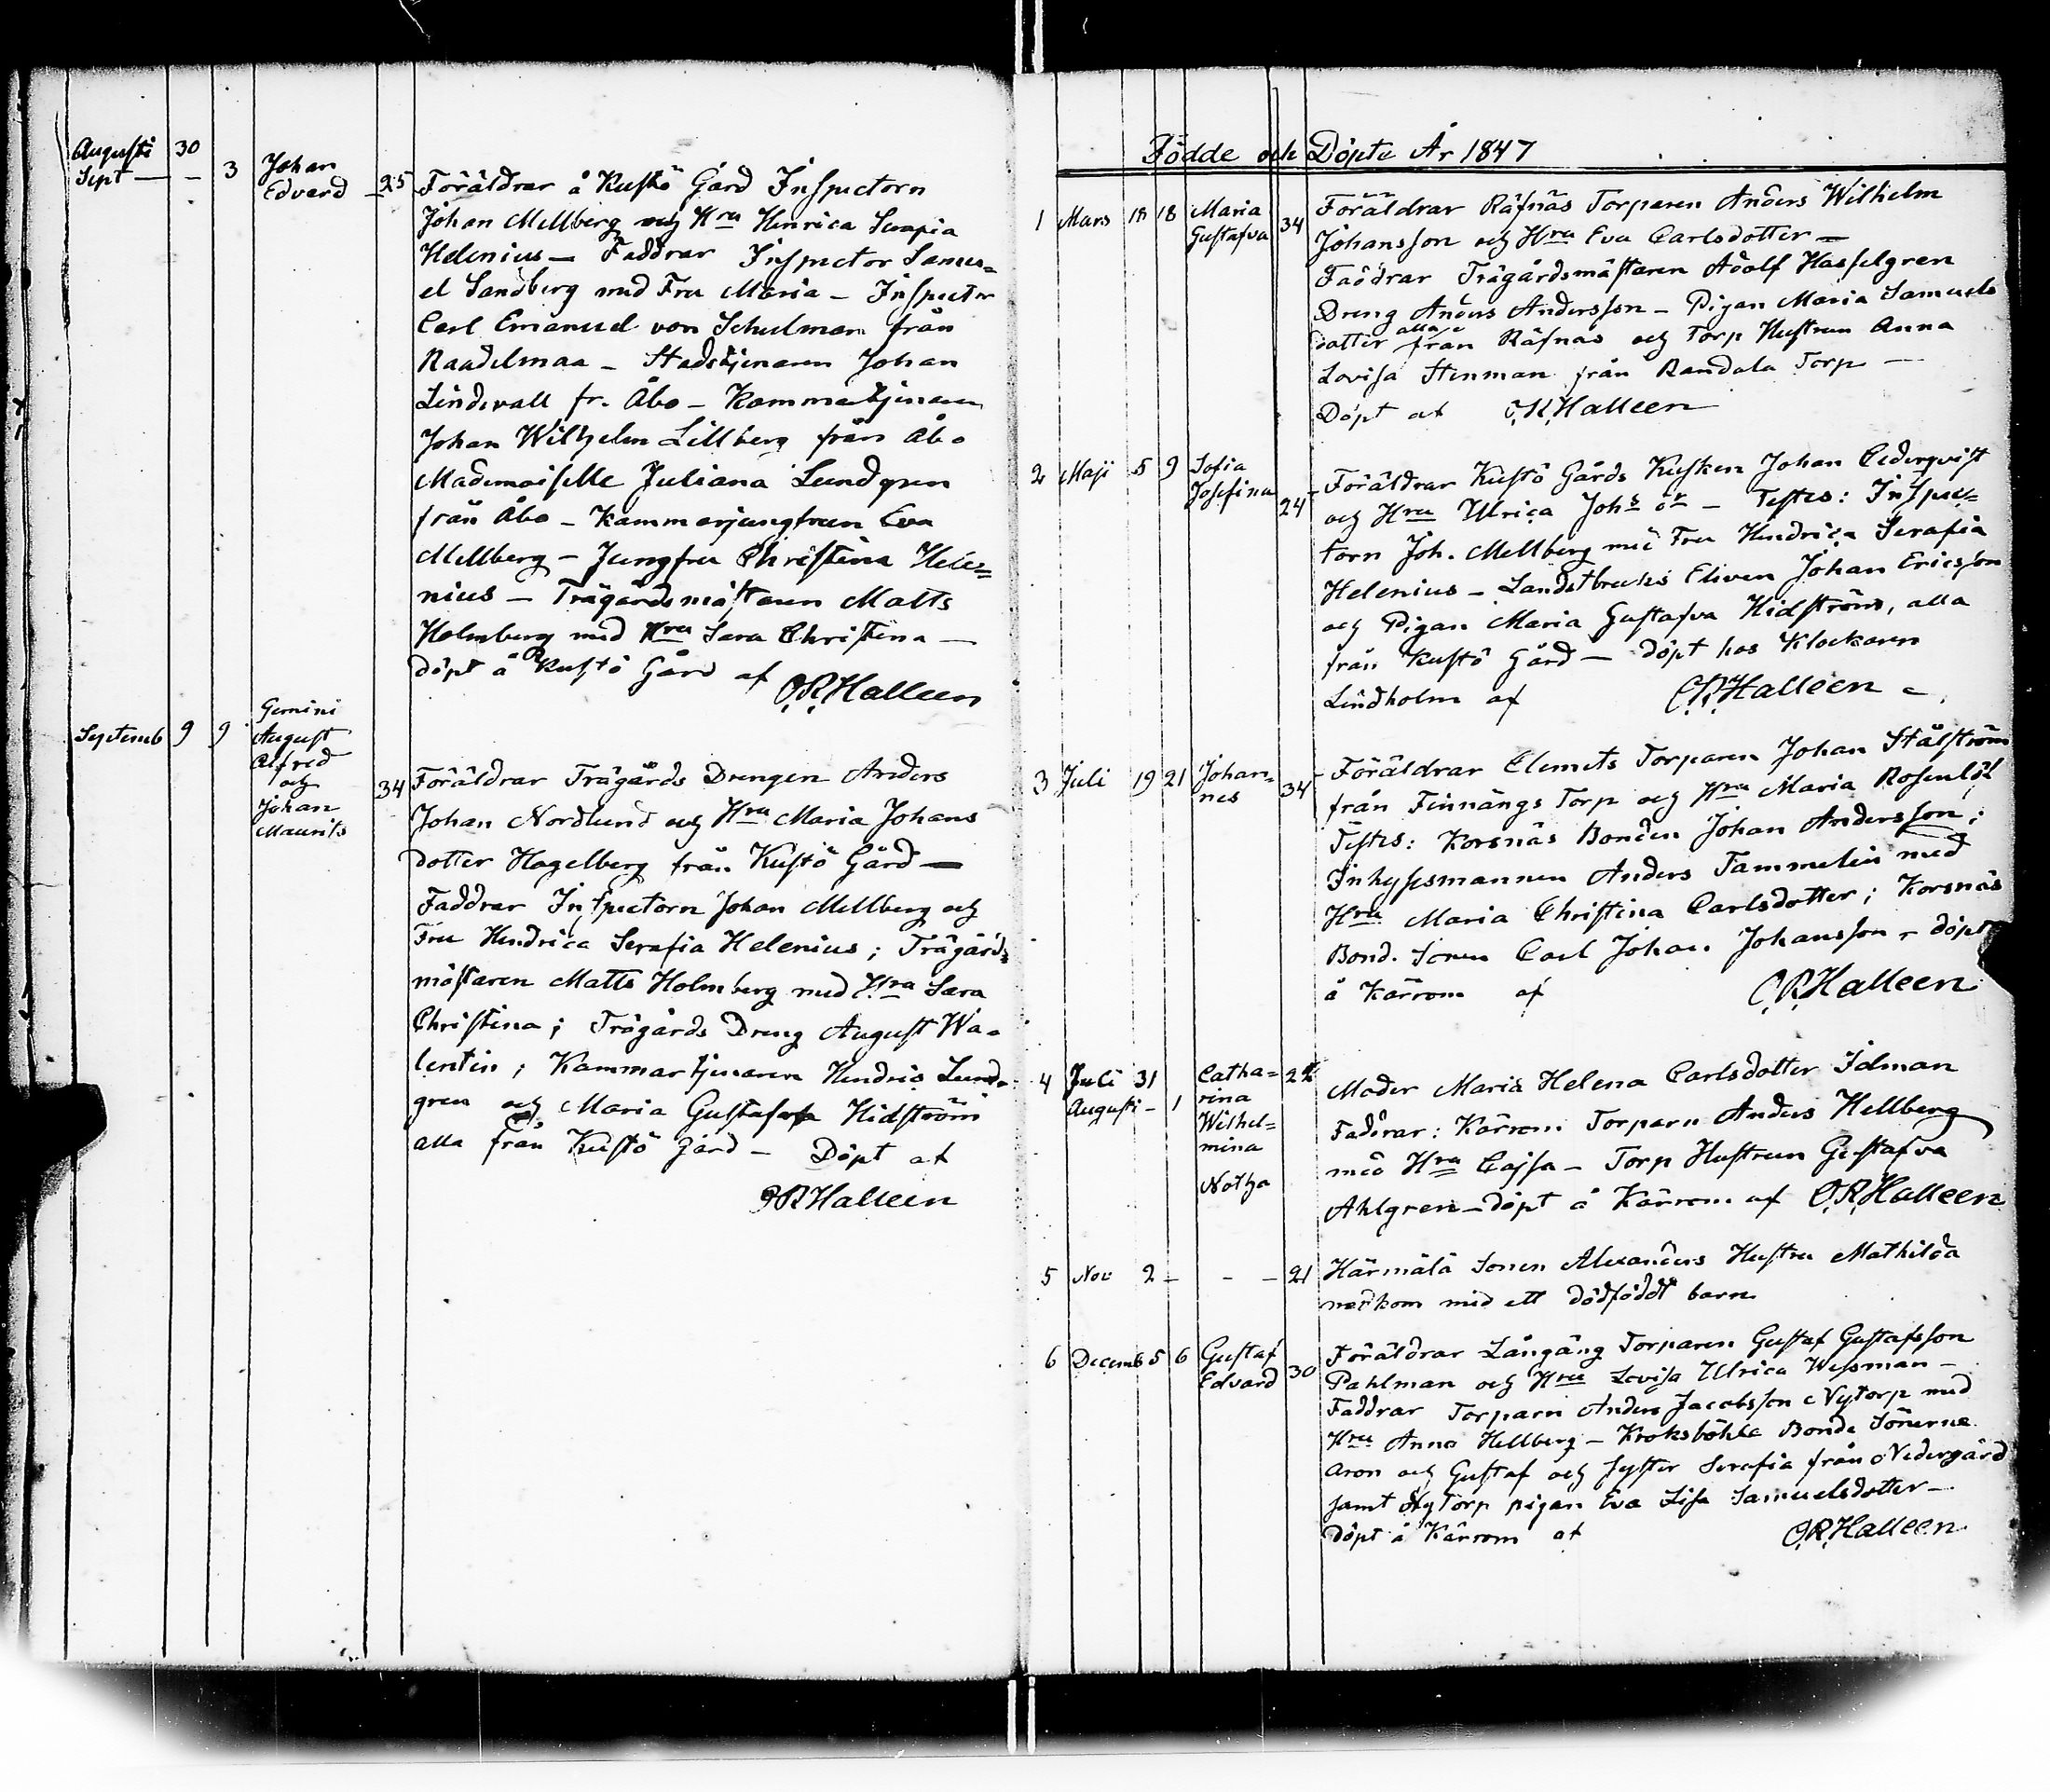 Augusti 30
Sept — — 3 Johan
Edvard 25 Föräldrar å Kustö Gård Inspectorn
Johan Mellberg och Hru Henrica Serapia
Helenius — Faddrar Inspector Samu=
el Sandberg med Fru Maria — Inspector
Carl Emanuel von Schulman från
Raadelmaa — Stadstjenaren Johan
Lindevall fr. Åbo — Kammertjenaren
Johan Wilhelm Lillberg från Åbo
Mademoiselle Juliana Lundgren
från Åbo — Kammarjungfrun Eva
Mellberg — Jungfru Christina Hele=
nius — Trägårdsmästaren Matts
Holmberg med Hru Sara Christina —
döpt å Kustö Gård af O.R.Halleen
Septemb 9 9 Gemini
August
Alfred
och
Johan
Maurits
34 Föräldrar Trägårds Drengen Anders
Johan Nordlund och Hru Maria Johans
dotter Hagelberg från Kustö Gård —
Faddrar Inspectorn Johan Mellberg och
Fru Hendrica Serafia Helenius; Trägårds
mästaren Matts Holmberg med Hru Sara
Christina; Trägårds Dreng August Wa=
lentin; Kammartjenaren Hendric Lund=
gren och Maria Gustafva Hidström
alla från Kustö gård — Döpt af
O.R.Halleen
Födde och Döpte År 1847
1 Mars 18 18 Maria
Gustafva 34 Föräldrar Räfnäs Torparen Anders Wilhelm
Johansson och Hru Eva Carlsdotter —
Faddrar Trägårdsmästaren Adolf Hasselgren
Dreng Anders Andersson — Pigan Maria Samuels
dotter alla från Räfnäs och Torp Hustrun Anna
Lovisa Stenman från Randala Torp —
Döpt af O.R.Halleen
2 Maji 5 9 Sofia
Josefina 24 Föräldrar Kustö Gårds Kusken Johan Cederqvist
och Hru Ulrica Johs dr — Testes: Inspec=
torn Joh. Mellberg med Fru Hendrica Serafia
Helenius — Landtbruks Eleven Johan Ericsson
och Pigan Maria Gustafva Hidström, alla
från Kustö Gård — döpt hos Klockaren
Lindholm af O.R.Halleen
3 Juli 19 21 Johan=
nes 34 Föräldrar Clemets Torparen Johan Stålström
från Finnängs Torp och Hru Maria Rosenlöf
Testes: Korsnäs Bonden Johan Andersson;
Inhysesmannen Anders Tammelin med
Hru Maria Christina Carlsdotter; Korsnäs
Bond. Sonen Carl Johan Johansson — döpt
å Kärrom af O.R.Halleen
4 Juli 31
Augusti — 1 Catha=
rina
Wilhel=
mina
Notha
Moder Maria Helena Carlsdotter Idman
Faddrar: Kärrom Torparn Anders Hellberg
med Hru Cajsa — Torp Hustrun Gustafva
Ahlgren — döpt å Kärrom af O.R.Halleen
5 Nov 2 — - — 21 Härmälä Sonen Alexanders Hustru Mathilda
nerkom med ett dödföddt barn
6 Decemb 5 6 Gustaf
Edvard 30 Föräldrar Långäng Torparen Gustaf Gustafsson
Pahlman och Hru Lovisa Ulrica Wessman —
Faddrar Torparn Anders Jacobsson Nytorp med
Hru Anna Hellberg — Kroksböhle Bonde Sönerne
Aron och Gustaf och syster Serafia från Nedergård
samt Nytorp pigan Eva Lisa Samuelsdotter —
Döpt å Kärrom af O.R.Halleen